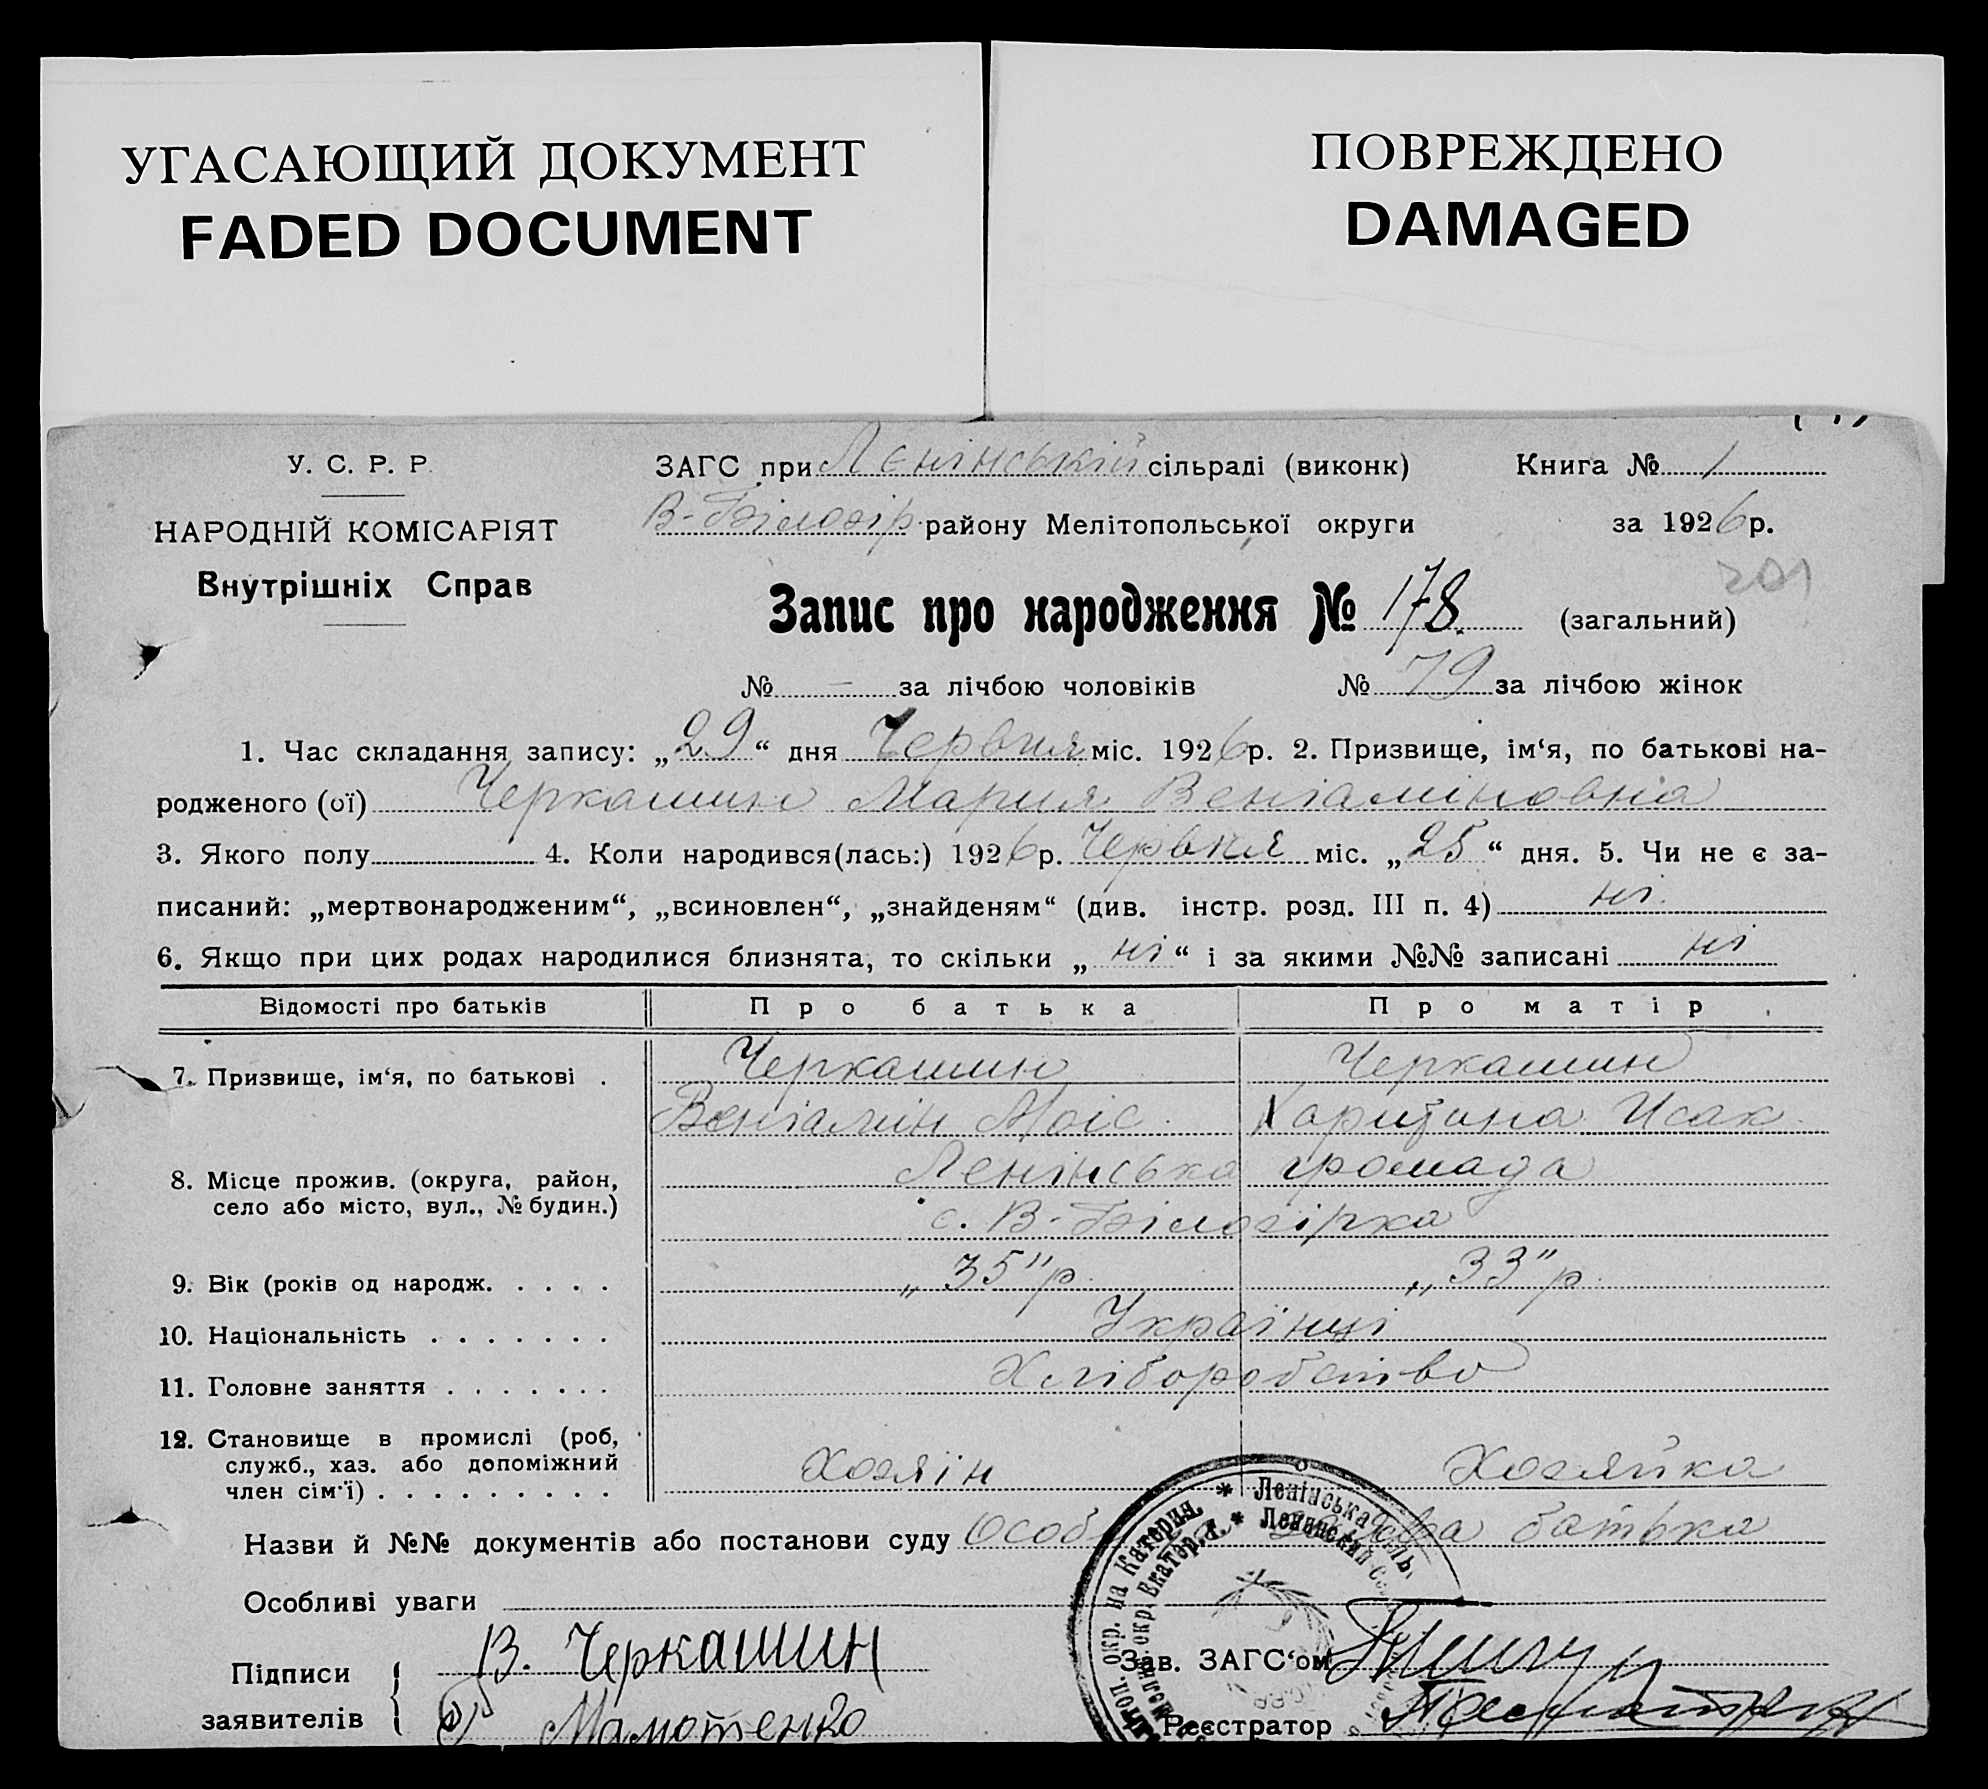 УГАСАЮЩИЙ ДОКУМЕНТ
FADED DOCUMENT
ПОВРЕЖДЕНО
DAMAGED
У. С. Р. Р.
НАРОДНІЙ КОМІСАРІЯТ
Внутрішніх Справ
ЗАГС при Ленінській сільраді (виконк)
Книга № 1
В-Білозір. району Мелітопольської округи
за 1926 р.
201
Запис про народження № 178. (загальний)
№ — за лічбою чоловіків № 79 за лічбою жінок
1. Час складання запису: „29“ дня Червня міс. 1926 р. 2. Призвище, ім‘я, по батькові на-
родженого (ої) Черкашин Мария Веніаміновна
3. Якого полу 4. Коли народився(лась:) 1926 р. Червня міс. „25“ дня. 5. Чи не є за-
писаний: „мертвонародженим“, „всиновлен“, „знайденям“ (див. інстр. розд. III п. 4) ні.
6. Якщо при цих родах народилися близнята, то скільки „ні“ і за якими №№ записані ні
Відомості про батьків Про батька Про матір
7. Призвище, ім‘я, по батькові . Черкашин Черкашин
Веніамін Моіс. Харитина Исак.
8. Місце прожив. (округа, район, Ленінська громада
село або місто, вул., № будин.) с. В-Білозірка
9. Вік (років од народж. . . . . „35" р. „33" р.
10. Національність . . . . . . . Українці
11. Головне заняття . . . . . . . Хліборобство
12. Становище в промислі (роб,
служб., хаз. або допоміжний Хозяін Хозяйка
член сім‘ї) . . . . . . . . .
Назви й №№ документів або постанови суду Особ заява батька
Особливі уваги
Підписи В. Черкашин
Зав. ЗАГС‘ом
заявителів Мамотенко
Реєстратор
Ленінська
Ленинский
окр. на Катерин.
окр. Екатер.